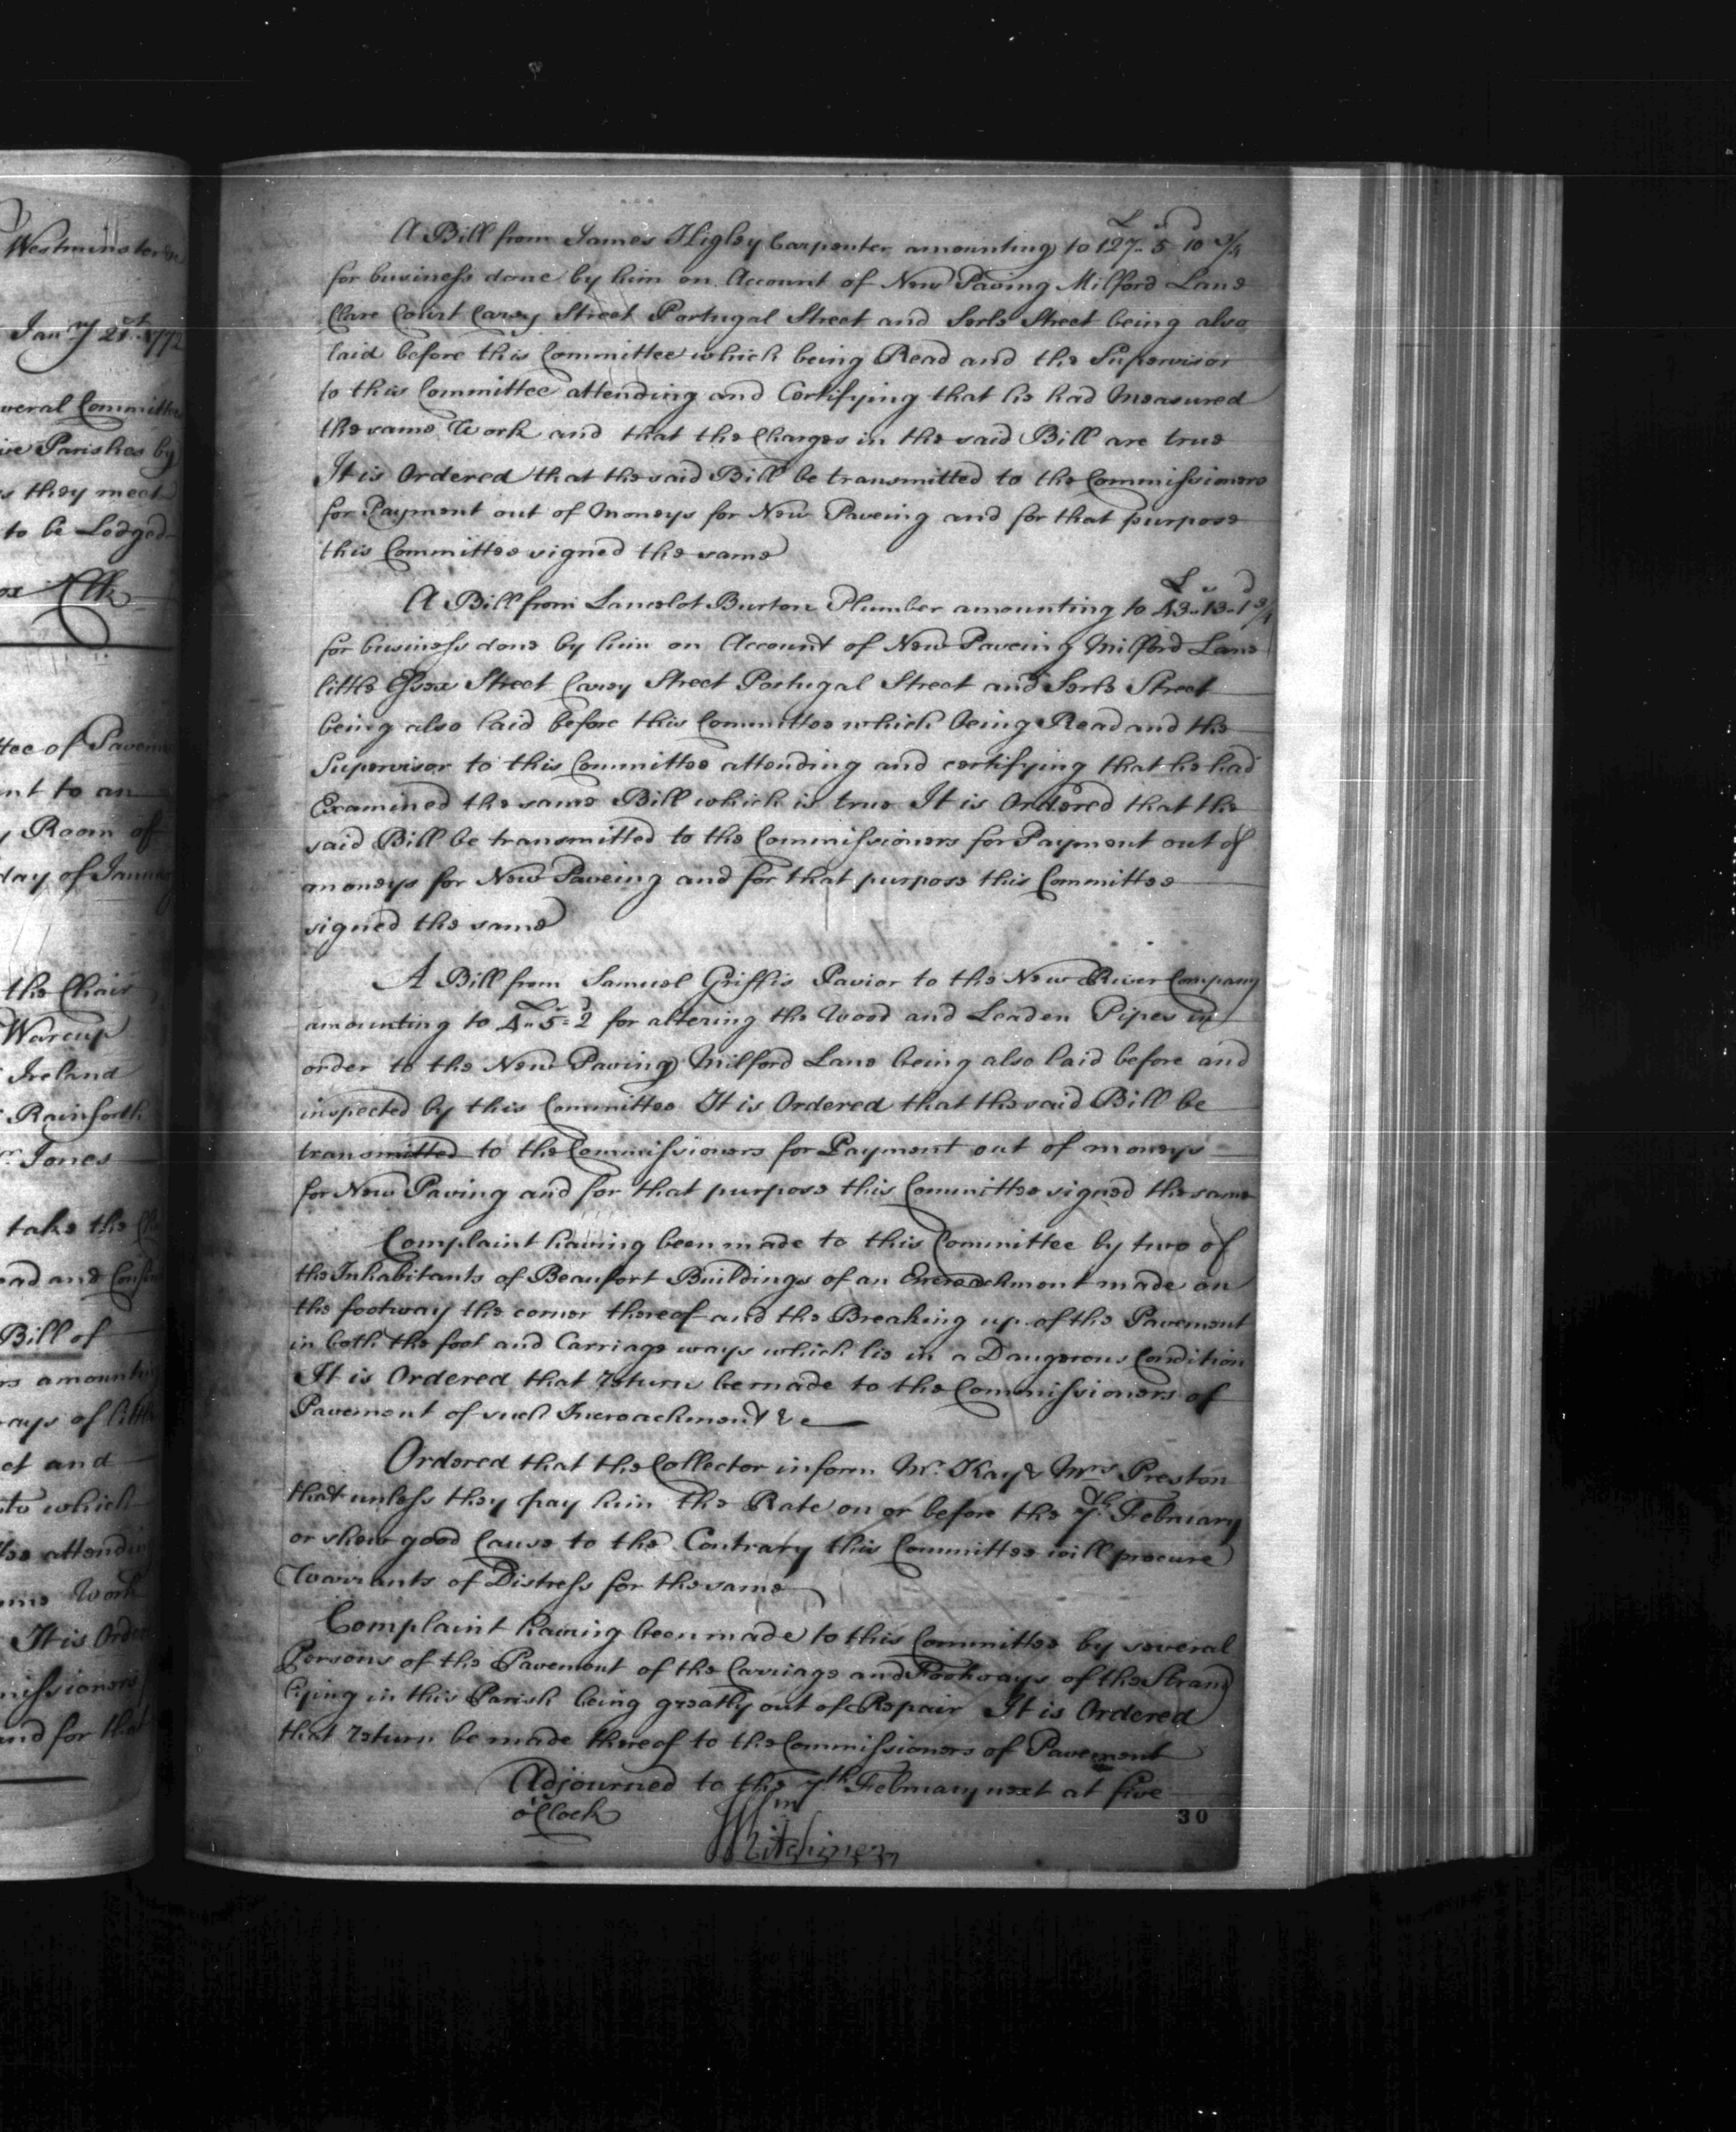 Westminster
Jan.ry 21st 1772
veral Committee
ive Parishes by
s they meet
to be Lodged
Clk
tee of Pavem
nt to an
Room of
day of Janua
the Chair
Warcup
Ireland
Rainforth
Jones
take the
ead and Confir
Bill of
rs amounting
ays of little
et and
to which
attendin
Work
It is Orde
missioners
and for that
£ s d
A Bill from James Higley Carpenter amounting to 127.. 5 10 3/4
for business done by him on Account of New Paving Milford Lane
Clare Court Carey Street Portugal Street and Serle Street being also
laid before this Committee which being Read and the Supervisor
to this Committee attending and Certifying that he had Measured
the same Work and that the Charges in the said Bill are true
It is Ordered that the said Bill be transmitted to the Commissioners
for Payment out of Moneys for New Paveing and for that purpose
this Committee signed the same
£ s d
A Bill from Lancelot Burton Plumber amounting to 43..13..1 3/4
for business done by him on Account of New Paveing Milford Lane
little Essex Street Carey Street Portugal Street and Serle Street
being also laid before this Committee which being Read and the
Supervisor to this Committee attending and certifying that he had
Examined the same Bill which is true It is Ordered that the
said Bill be transmitted to the Commissioners for Payment out of
moneys for New Paveing and for that purpose this Committee
signed the same
A Bill from Samuel Griffis Pavior to the New River Company
amounting to £4..s5=d2 for altering the Wood and Leaden Pipes in
order to the New Paving Milford Lane being also laid before and
inspected by this Committee It is Ordered that the said Bill be
transmitted to the Commissioners for Payment out of moneys
for New Paving and for that purpose this Committee signed the same
Complaint having been made to this Committee by two of
the Inhabitants of Beaufort Buildings of an Encroachment made on
the footway the corner thereof and the Breaking up of the Pavement
in both the foot and Carriage ways which lie in a Dangerous Condition
It is Ordered that return be made to the Commissioners of
Pavement of such Incroachment &c
Ordered that the Collector inform Mr. Kay & Mrs Preston
that unless they pay him the Rate on or before the 7th February
or shew good Cause to the Contrary this Committee will procure
Warrants of Distress for the same
Complaint having been made to this Committee by several
Persons of the Pavement of the Carriage and Footways of the Strand
lying in this Parish being greatly out of Repair It is Ordered
that return be made thereof to the Commissioners of Pavement
Adjourned to the 7th February next at five
o'Clock
30